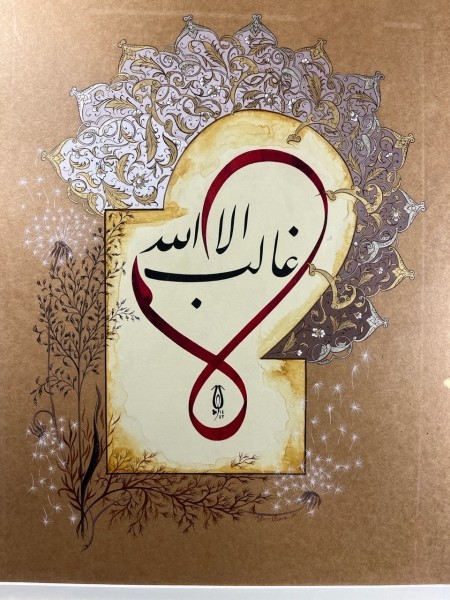 لا غالب الا الله